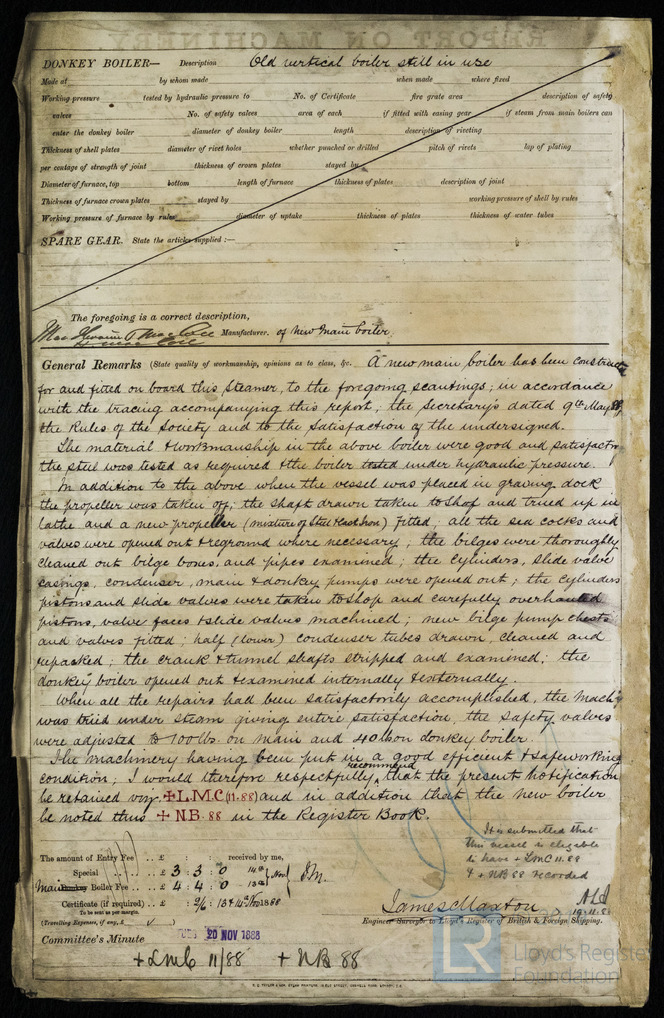 DONKEY BOILER— Description Old vertical boiler still in use
Made at by whom made when made where fixed
Working pressure tested by hydraulic pressure to No. of Certificate fire grate area description of safety
valves No. of safety valves area of each if fitted with easing gear if steam from main boilers can
enter the donkey boiler diameter of donkey boiler length description of riveting
Thickness of shell plates diameter of rivet holes whether punched or drilled pitch of rivets lap of plating
per centage of strength of joint thickness of crown plates stayed by
Diameter of furnace, top bottom length of furnace thickness of plates description of joint
Thickness of furnace crown plates stayed by working pressure of shell by rules
Working pressure of furnace by rules diameter of uptake thickness of plates thickness of water tubes
SPARE GEAR. State the articles supplied :—
The foregoing is a correct description,
Manufacturer. of New Main boiler.
General Remarks (State quality of workmanship, opinions as to class, &c. A new main boiler has been constructed
for and fitted on board this Steamer, to the foregoing scantlings, in accordance
with the tracing accompanying this report, the Secretary's dated 9th May 88,
the Rules of the Society and to the Satisfaction of the undersigned.
The material & workmanship in the above boiler were good and satisfactory
the steel was tested as required & the boiler tested under hydraulic pressure.
In addition to the above when the vessel was placed in graving dock
the propeller was taken off; the shaft drawn taken to Shop and trued up in
lathe and a new propeller (mixture of Steel & cast iron) fitted; all the sea cocks and
valves were opened out & reground where necessary; the bilges were thoroughly
cleaned out bilge boxes, and pipes examined; the cylinders, slide valve
casings, condenser, main & donkey pumps were opened out; the cylinders
pistons and slide valves were taken to Shop and carefully overhauled
pistons, valve faces & slide valves machined; new bilge pump chests
and valves fitted; half (lower) condenser tubes drawn, cleaned and
repacked; the crank & tunnel shafts stripped and examined; the
donkey boiler opened out & examined internally & externally.
When all the repairs had been satisfactorily accomplished, the Mach'y
was tried under steam giving entire satisfaction, the safety valves
were adjusted to 100 lbs. on main and 40 lbs on donkey boiler.
The Machinery having been put in a good efficient & safe working
condition; I would therefore respectfully recommend, that the present notification
be retained viz. ✠ L.M.C (11.88) and in addition that the new boiler
be noted thus ✠ N.B. 88 in the Register Book.
It is submitted that
this vessel is eligible
to have + LMC 11.88
& + NB 88 recorded
19.11.88
The amount of Entry Fee .. £ : : received by me,
Special .. £ 3 : 3 : 0
Main Donkey Boiler Fee .. £ 4 : 4 : 0
Certificate (if required) .. £ : 2/6 : 1888
To be sent as per margin.
(Travelling Expenses, if any, £ )
James Maxton
Engineer Surveyor to Lloyd's Register of British & Foreign Shipping.
Committee's Minute
TUES 20 NOV 1888
+ LMC 11/88 + NB 88
LR
Lloyd's Register
Foundation